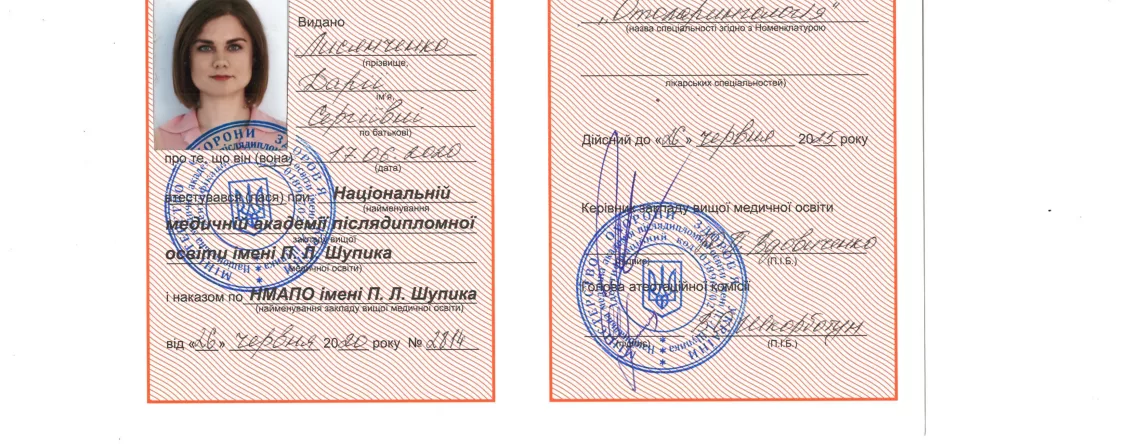 Видано
Лисянченко
(прізвище,
Дарії
ім'я,
Сергіївні
по батькові)
про те, що він (вона) 17.06.2020
(дата)
атестувався (лася) при Національній
(найменування
медичній академії післядипломної
закладу вищої
освіти імені П. Л. Шупика
(медичної освіти)
і наказом по НМАПО імені П. Л. Шупика
(найменування закладу вищої медичної освіти)
від «26» червня 2020 року № 2814
„Отоларингологія"
(назва спеціальності згідно з Номенклатурою
лікарських спеціальностей)
Дійсний до «26» червня 2025 року
Керівник закладу вищої медичної освіти
Вдовиченко
(підпис) (П.І.Б.)
Голова атестаційної комісії
Шкорботун
(підпис) (П.І.Б.)
МІНІСТЕРСТВО ОХОРОНИ ЗДОРОВ'Я УКРАЇНИ